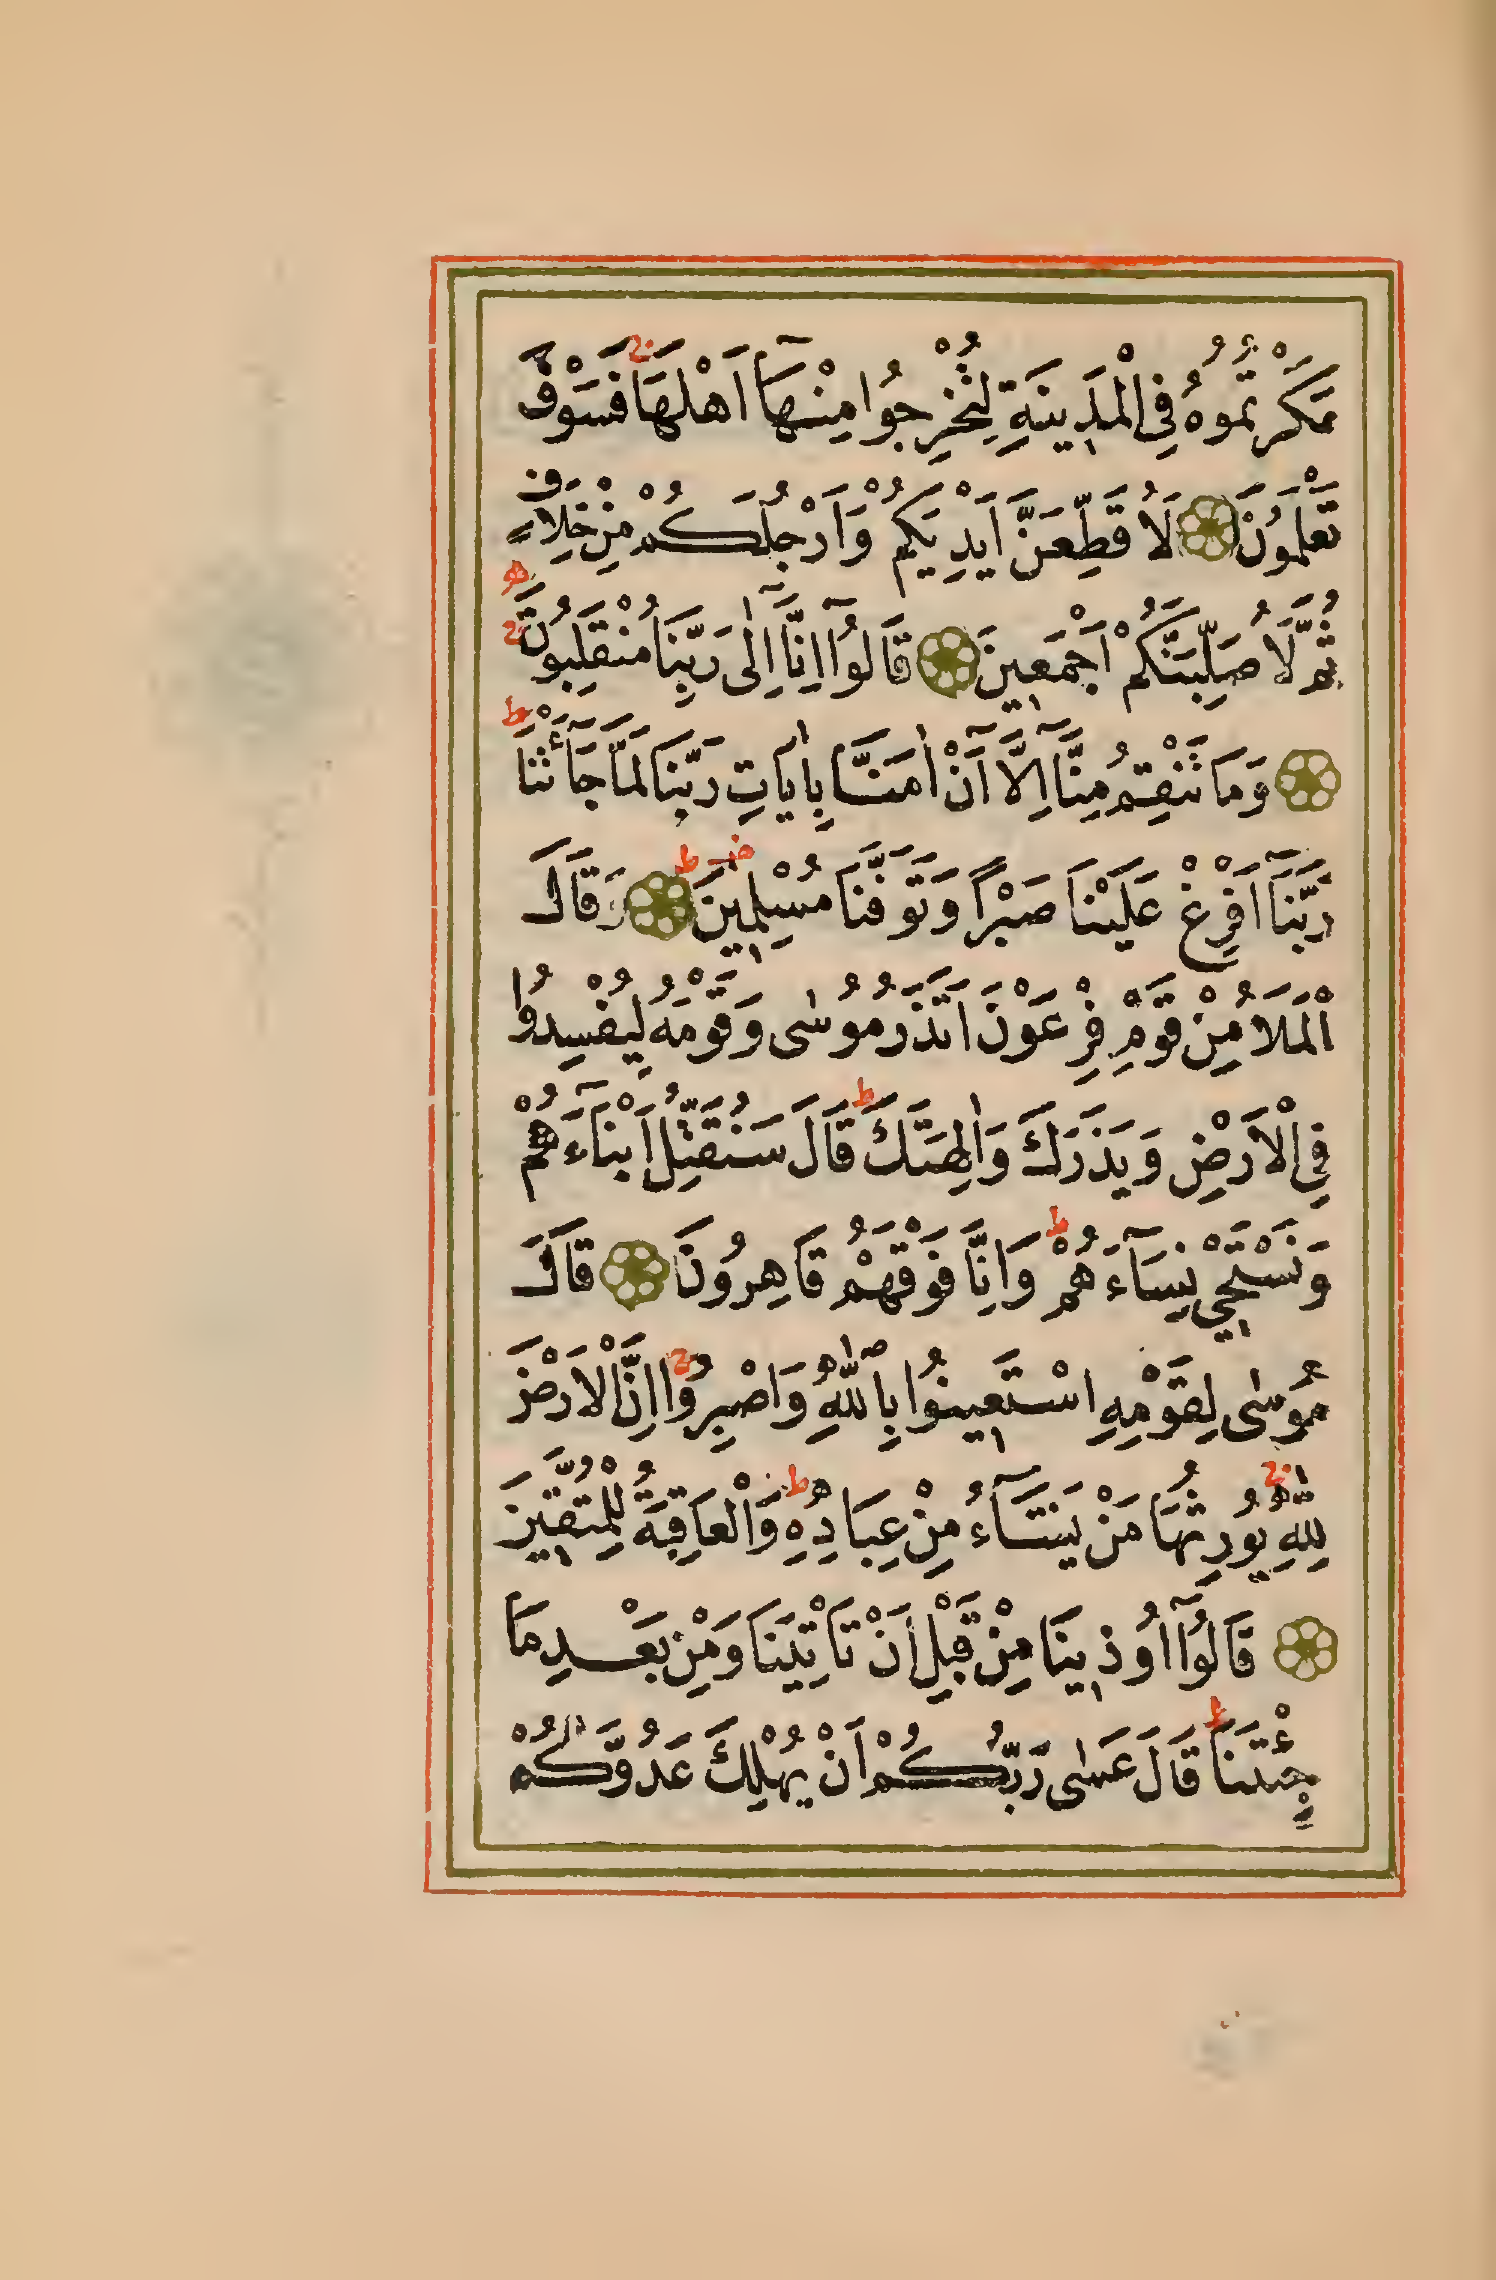 مَكَرْتُمُوهُ فِي الْمَدِينَةِ لِتُخْرِجُوا مِنْهَٓا اَهْلَهَا ۚ فَسَوْفَ
تَعْلَمُونَ ۝ لَاُقَطِّعَنَّ اَيْدِيَكُمْ وَاَرْجُلَكُمْ مِنْ خِلَافٍ
ثُمَّ لَاُصَلِّبَنَّكُمْ اَجْمَعِينَ ۝ قَالُوٓا اِنَّٓا اِلٰى رَبِّنَا مُنْقَلِبُونَ ۚ
۝ وَمَا تَنْقِمُ مِنَّٓا اِلَّٓا اَنْ اٰمَنَّا بِاٰيَاتِ رَبِّنَا لَمَّا جَٓاءَتْنَا ۜ ط
رَبَّنَٓا اَفْرِغْ عَلَيْنَا صَبْرًا وَتَوَفَّنَا مُسْلِمِينَ ط ۝ وَقَالَ
الْمَلَاُ مِنْ قَوْمِ فِرْعَوْنَ اَتَذَرُ مُوسٰى وَقَوْمَهُ لِيُفْسِدُوا
فِي الْاَرْضِ وَيَذَرَكَ وَاٰلِهَتَكَ ط قَالَ سَنُقَتِّلُ اَبْنَٓاءَهُمْ
وَنَسْتَحْيِي نِسَٓاءَهُمْ ط وَاِنَّا فَوْقَهُمْ قَاهِرُونَ ۝ قَالَ
مُوسٰى لِقَوْمِهِ اسْتَعِينُوا بِاللّٰهِ وَاصْبِرُوا ۚ اِنَّ الْاَرْضَ
لِلّٰهِ ۚ يُورِثُهَا مَنْ يَشَٓاءُ مِنْ عِبَادِهِ ط وَالْعَاقِبَةُ لِلْمُتَّقِينَ
۝ قَالُوٓا اُوذِينَا مِنْ قَبْلِ اَنْ تَأْتِيَنَا وَمِنْ بَعْدِ مَا
جِئْتَنَا ط قَالَ عَسٰى رَبُّكُمْ اَنْ يُهْلِكَ عَدُوَّكُمْ